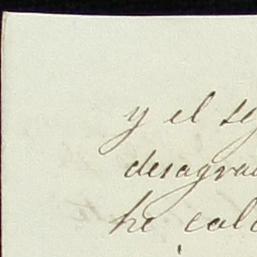 y el
desagra
he calc